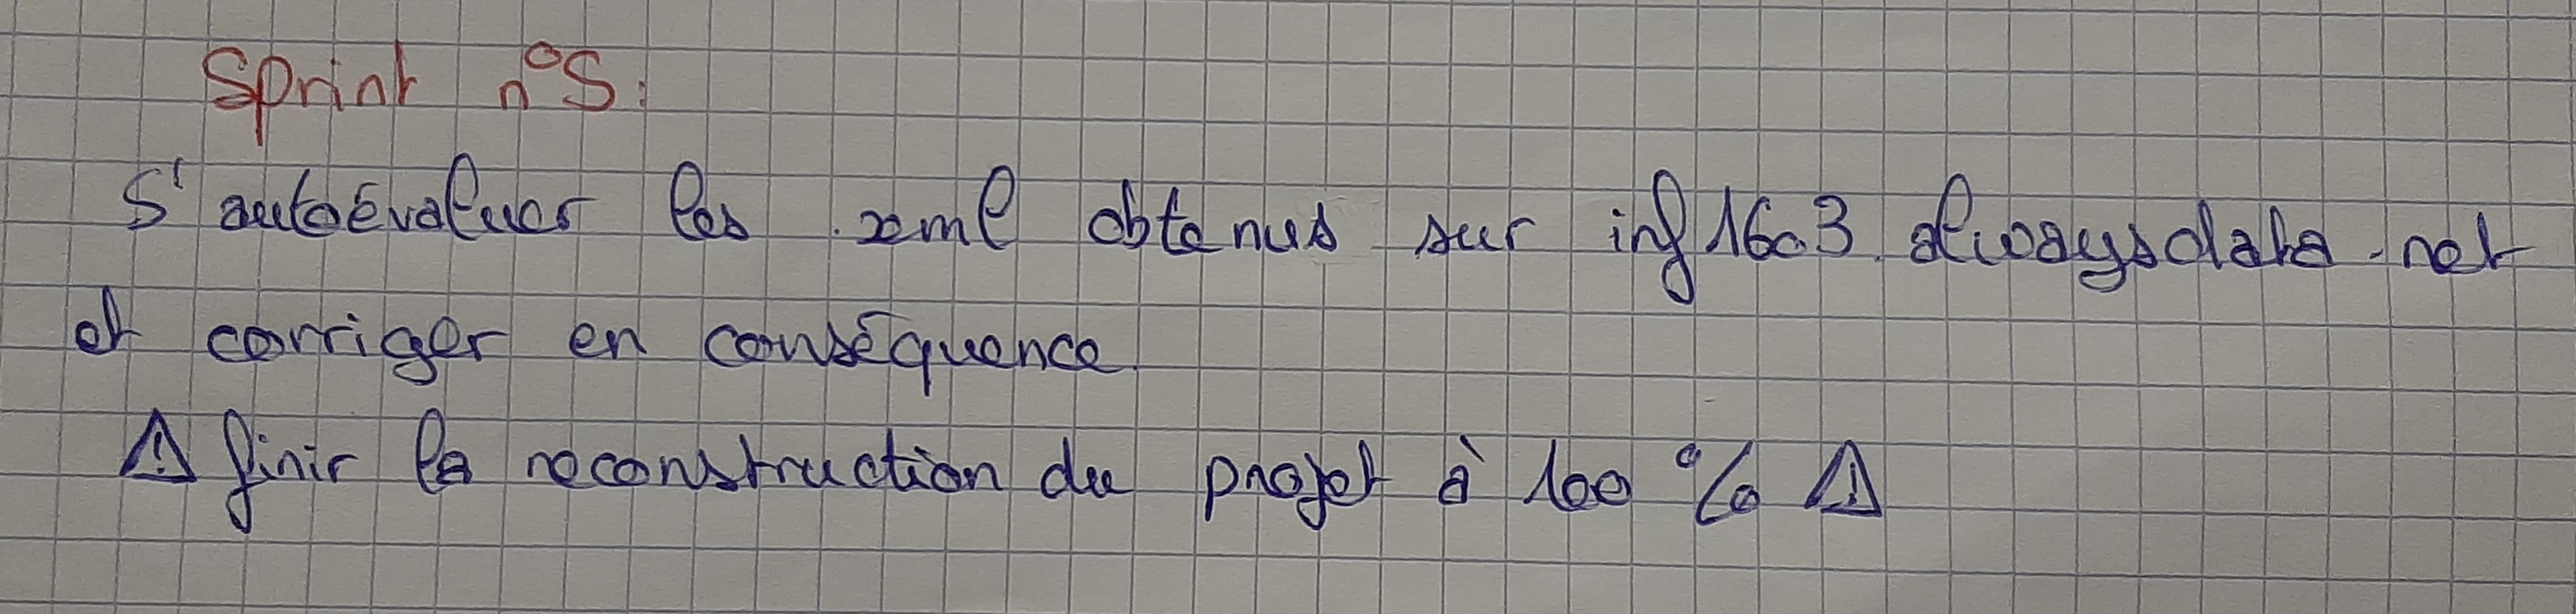 Sprint n°5:
S'autoévaluer les .xml obtenus sur inf1603.alwaysdata.net
et corriger en conséquence.
⚠ finir la reconstruction du projet à 100 % ⚠